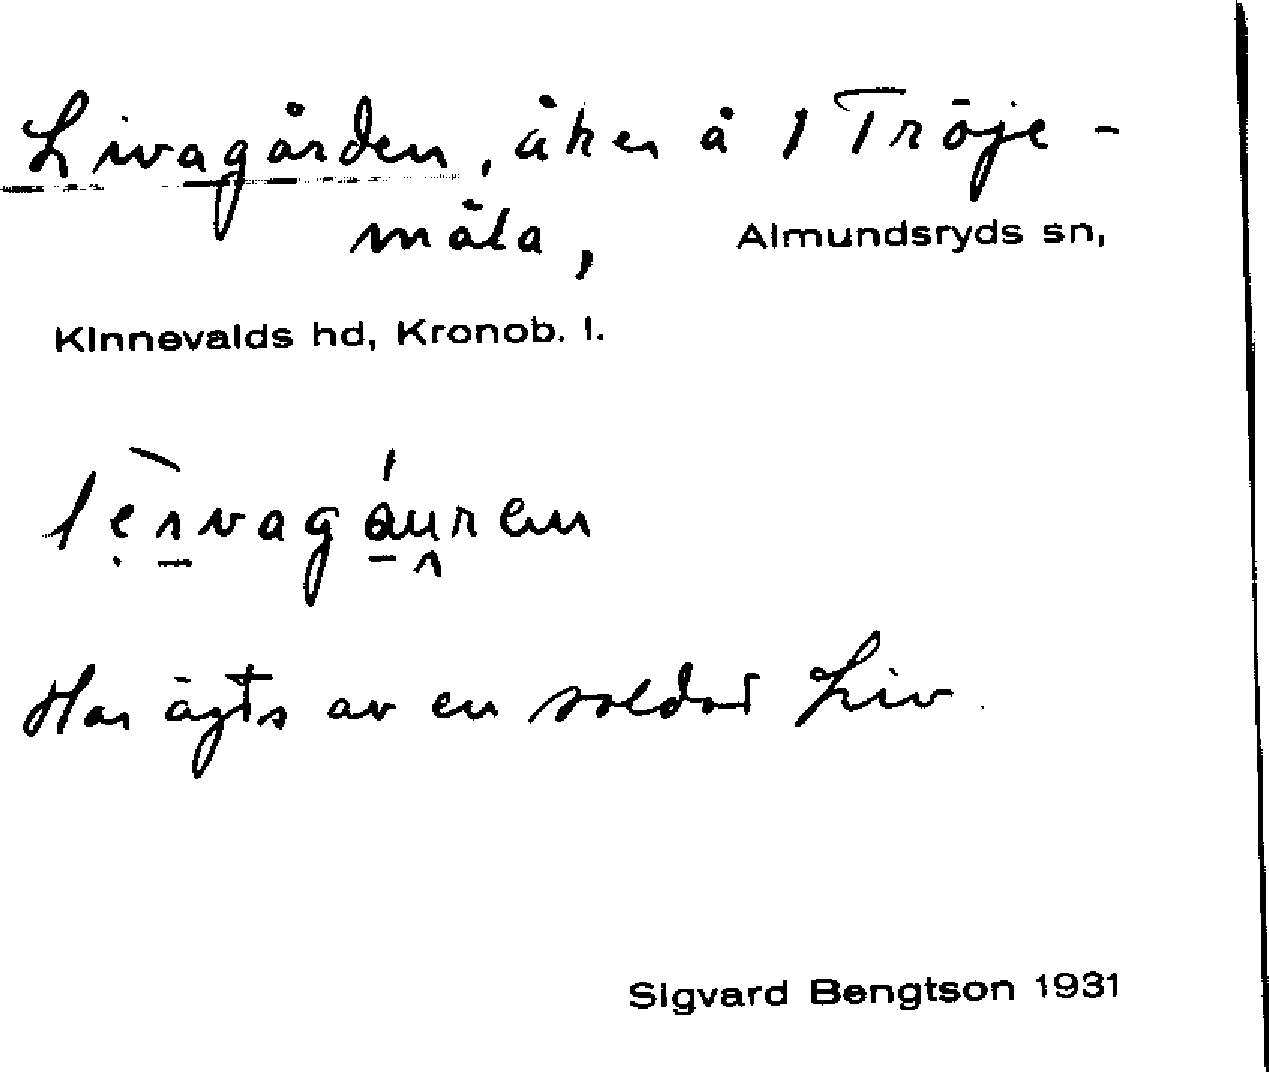 Livagården, åker å 1 Tröje-
måla, Almundsryds sn,
Kinnevalds hd, Kronob. l.
Har ägts av en soldat Liv.
Sigvard Bengtson 1931